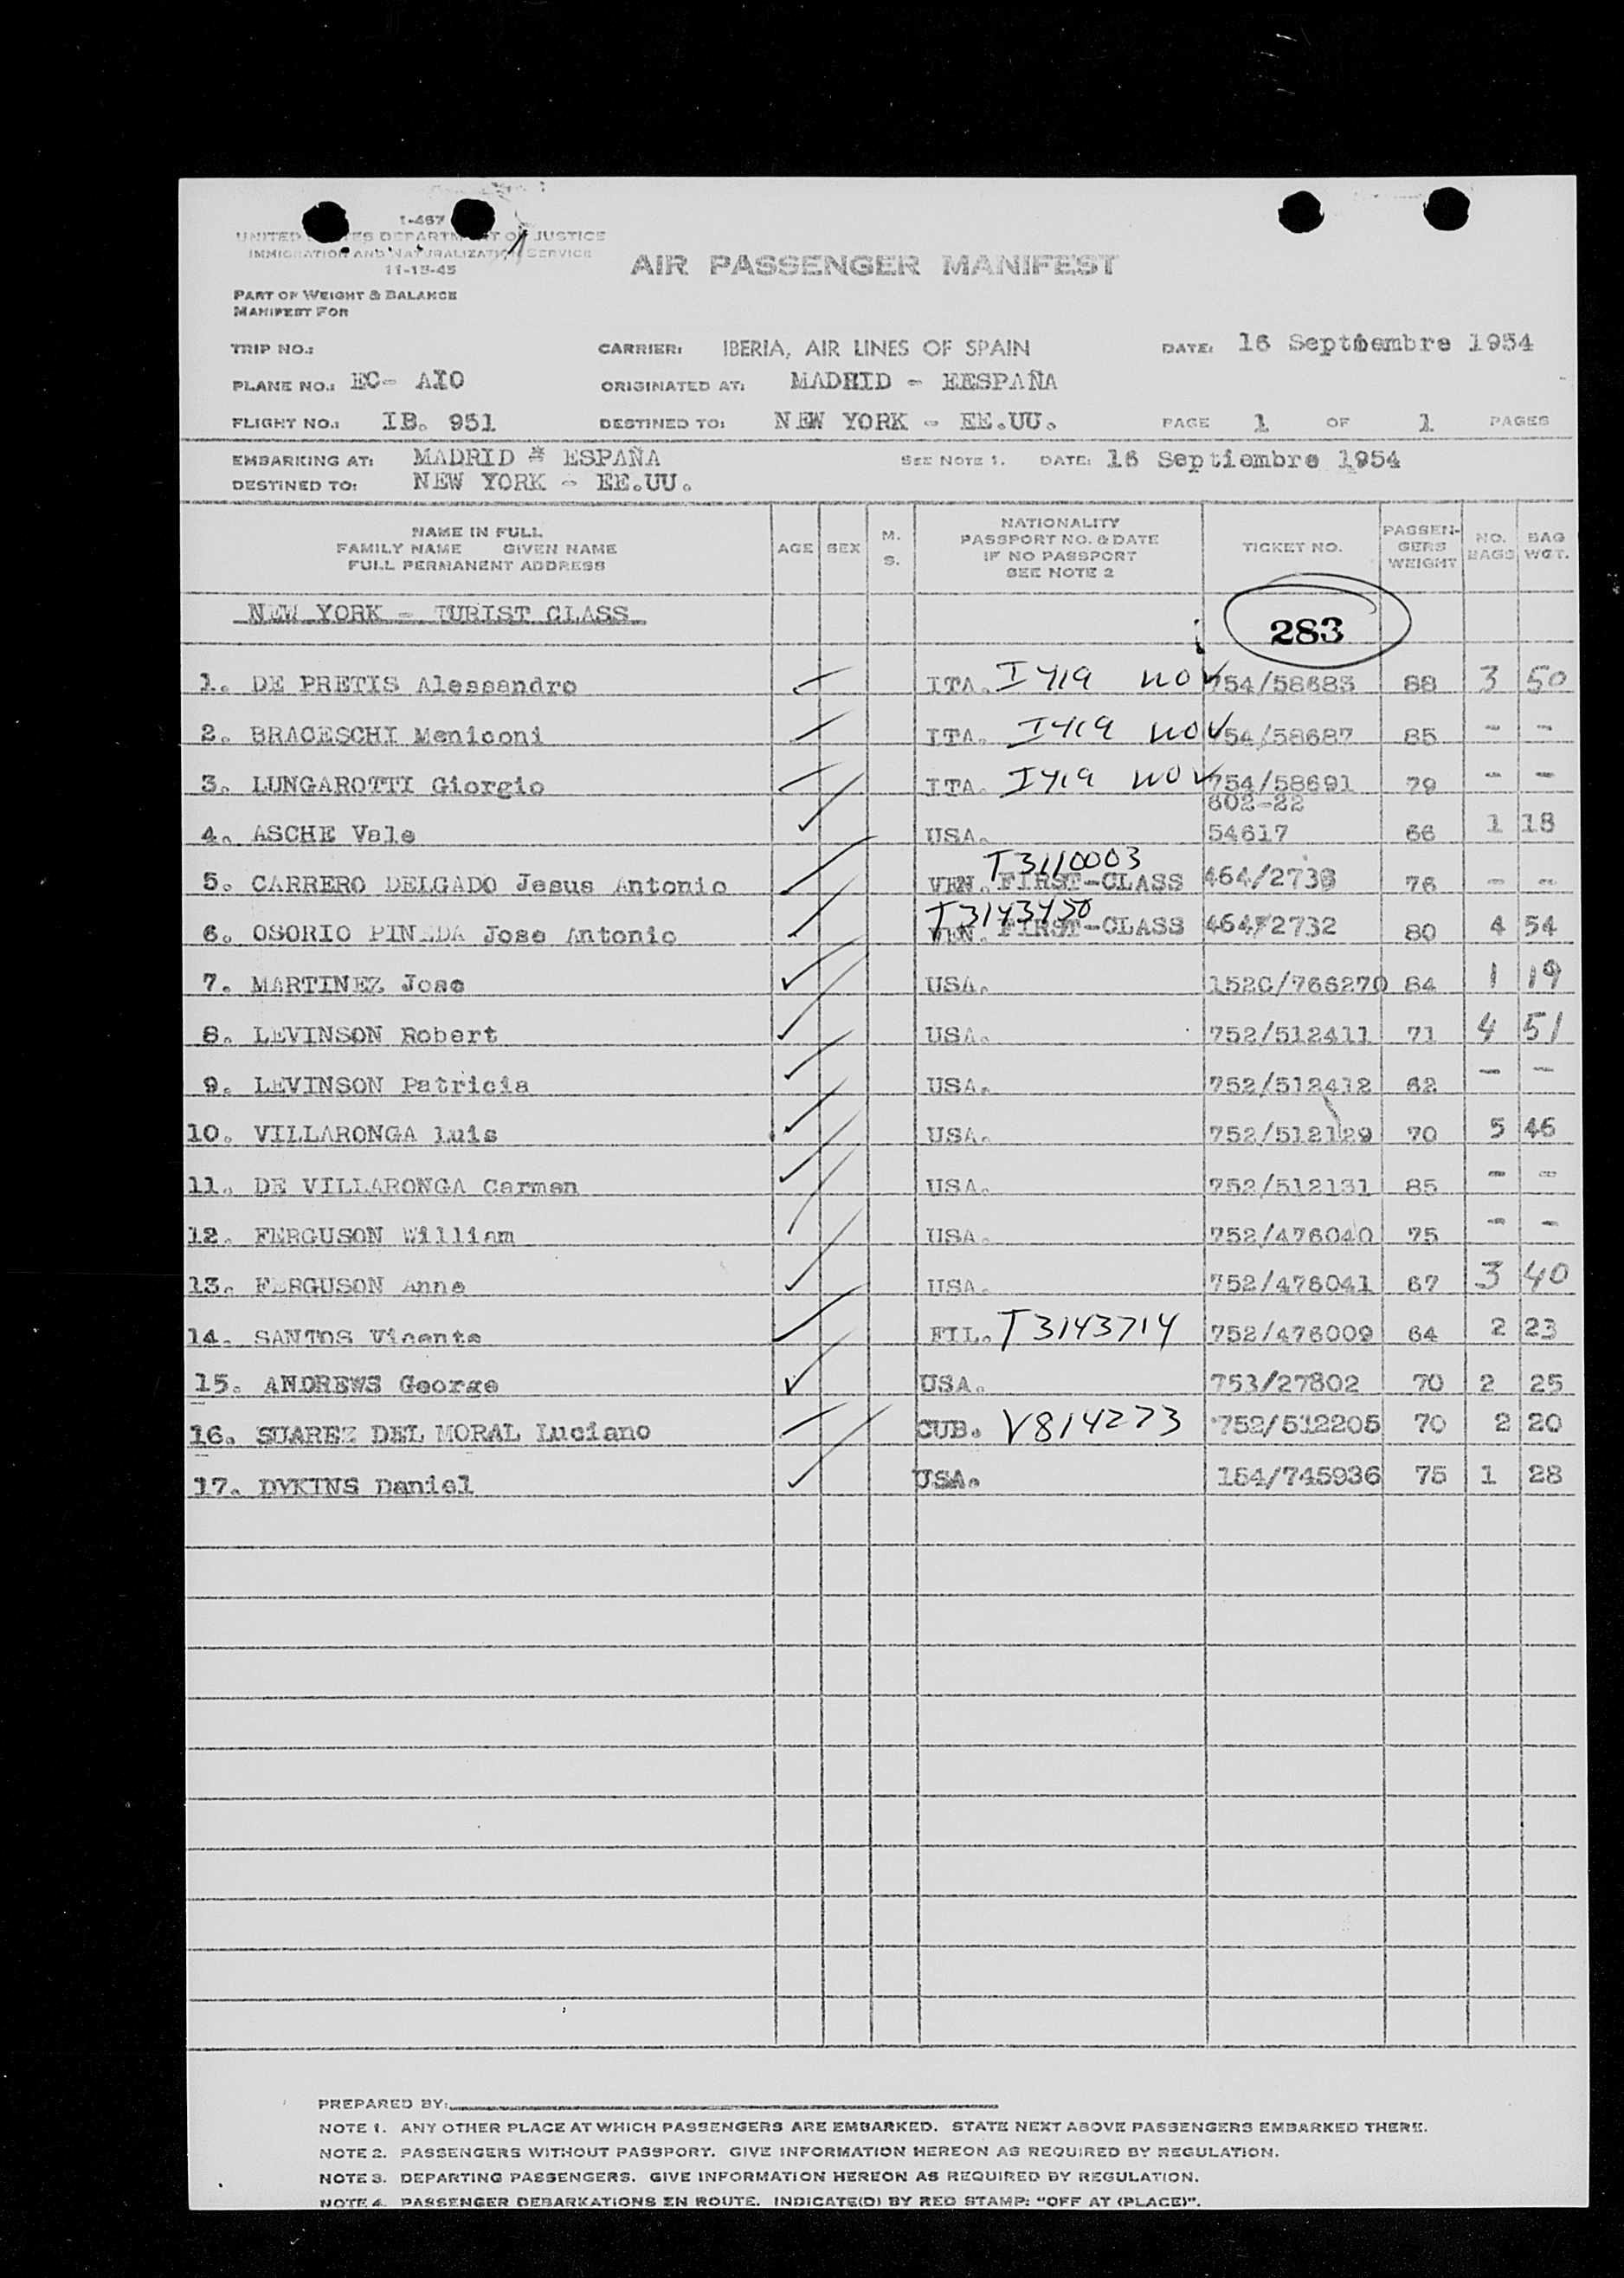 I-467
UNITED STATES DEPARTMENT OF JUSTICE
IMMIGRATION AND NATURALIZATION SERVICE
11-15-45
AIR PASSENGER MANIFEST
PART OF WEIGHT & BALANCE
MANIFEST FOR
TRIP NO.: CARRIER: IBERIA, AIR LINES OF SPAIN DATE: 16 Septiembre 1954
PLANE NO.: EC- AIO ORIGINATED AT: MADRID - EESPAÑA
FLIGHT NO.: IB. 951 DESTINED TO: NEW YORK - EE.UU. PAGE 1 OF 1 PAGES
EMBARKING AT: MADRID * ESPAÑA SEE NOTE 1. DATE: 16 Septiembre 1954
DESTINED TO: NEW YORK - EE.UU.
NAME IN FULL
FAMILY NAME GIVEN NAME
FULL PERMANENT ADDRESS
AGE SEX M. S.
NATIONALITY
PASSPORT NO. & DATE
IF NO PASSPORT
SEE NOTE 2
TICKET NO.
PASSENGERS WEIGHT
NO. BAGS
BAG WGT.
NEW YORK - TURIST CLASS 283
1. DE PRETIS Alessandro ITA. I419 NOV 754/58683 88 3 50
2. BRACESCHI Meniconi ITA. I419 NOV 754/58687 85 - -
3. LUNGAROTTI Giorgio ITA. I419 NOV 754/58691 79 - -
602-22
4. ASCHE Vale USA. 54617 66 1 18
T3110003
5. CARRERO DELGADO Jesus Antonio VEN. FIRST-CLASS 464/2736 76 - -
T3143450
6. OSORIO PINEDA Jose Antonio VEN. FIRST-CLASS 464/2732 80 4 54
7. MARTINEZ Jose USA. 1520/766270 84 1 19
8. LEVINSON Robert USA. 752/512411 71 4 51
9. LEVINSON Patricia USA. 752/512412 62 - -
10. VILLARONGA Luis USA. 752/512129 70 5 46
11. DE VILLARONGA Carmen USA. 752/512131 85 - -
12. FERGUSON William USA. 752/476040 75 - -
13. FERGUSON Anne USA. 752/476041 67 3 40
14. SANTOS Vicente FIL. T3143714 752/476009 64 2 23
15. ANDREWS George USA. 753/27802 70 2 25
16. SUAREZ DEL MORAL Luciano CUB. V814273 752/512205 70 2 20
17. DYKINS Daniel USA. 154/745936 75 1 28
PREPARED BY:
NOTE 1. ANY OTHER PLACE AT WHICH PASSENGERS ARE EMBARKED. STATE NEXT ABOVE PASSENGERS EMBARKED THERE.
NOTE 2. PASSENGERS WITHOUT PASSPORT. GIVE INFORMATION HEREON AS REQUIRED BY REGULATION.
NOTE 3. DEPARTING PASSENGERS. GIVE INFORMATION HEREON AS REQUIRED BY REGULATION.
NOTE 4. PASSENGER DEBARKATIONS EN ROUTE. INDICATE(D) BY RED STAMP: "OFF AT (PLACE)".